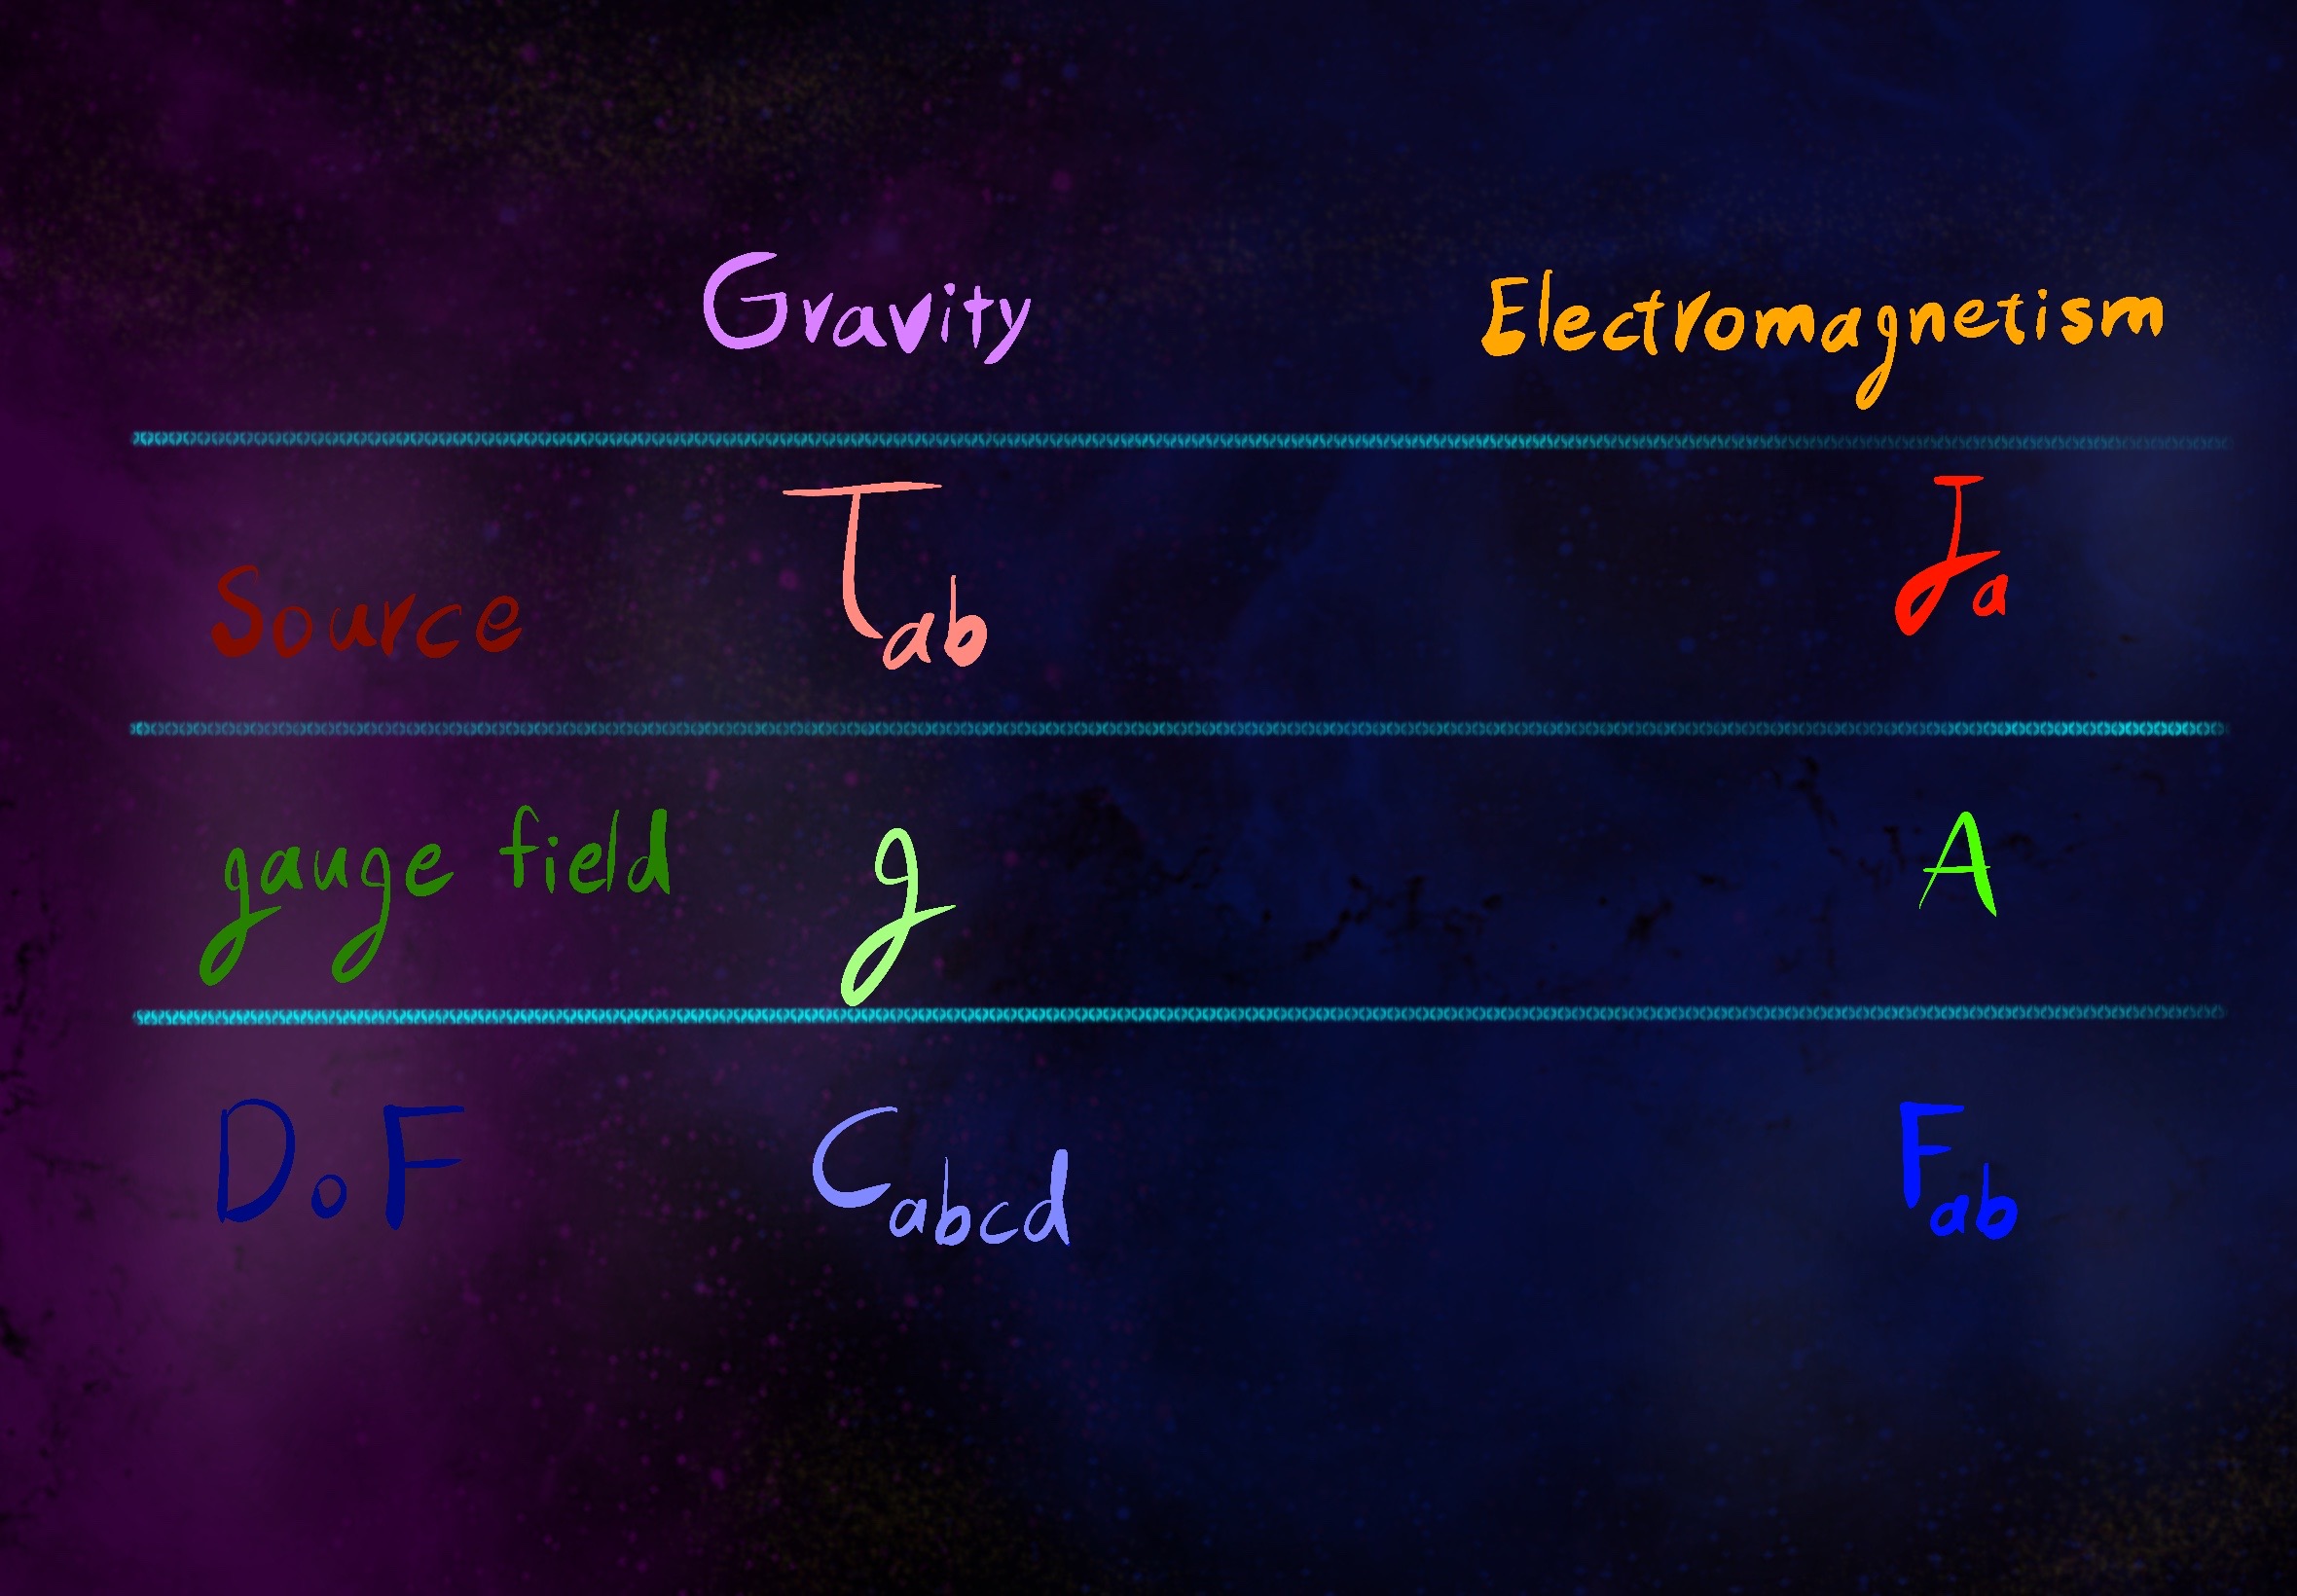 Gravity Electromagnetism
Source Tab Ja
gauge field g A
DoF Cabcd Fab